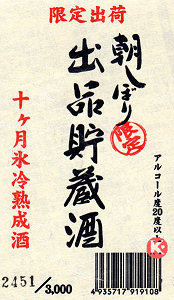 限定出荷
朝しぼり
限定
出品貯蔵酒
十ヶ月氷冷熟成酒
アルコール度20度以上
K
2451/3,000
4935717919108